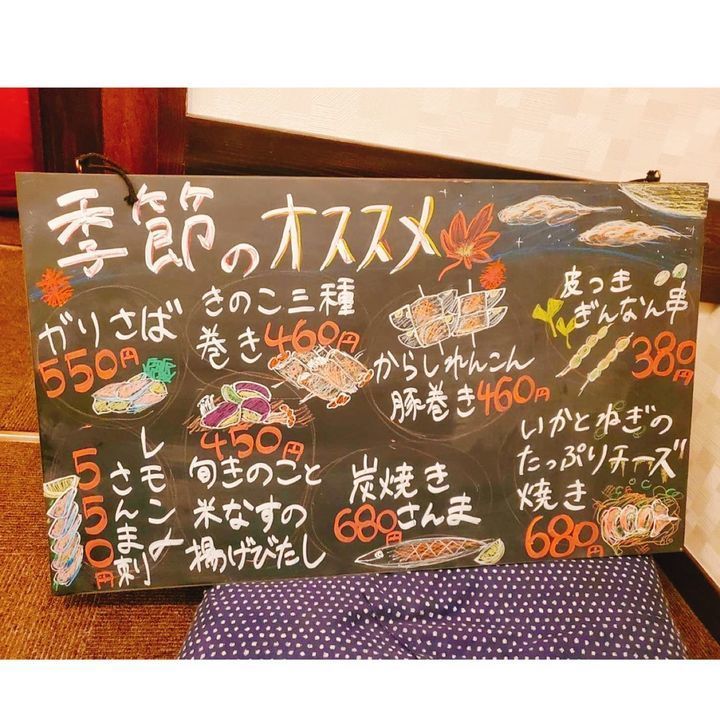 季節のオススメ
がりさば
550円
きのこ三種
巻き460円
からしれんこん
豚巻き460円
皮つき
ぎんなん串
380円
レモン〆
さんま刺
550円
450円
旬きのこと
米なすの
揚げびたし
炭焼き
さんま
680円
いかとねぎの
たっぷりチーズ
焼き
680円